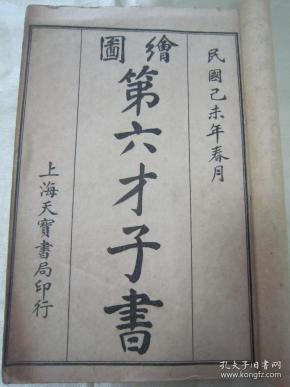 民國己未年春月
繪圖
第六才子書
上海天寶書局印行
孔夫子旧书网